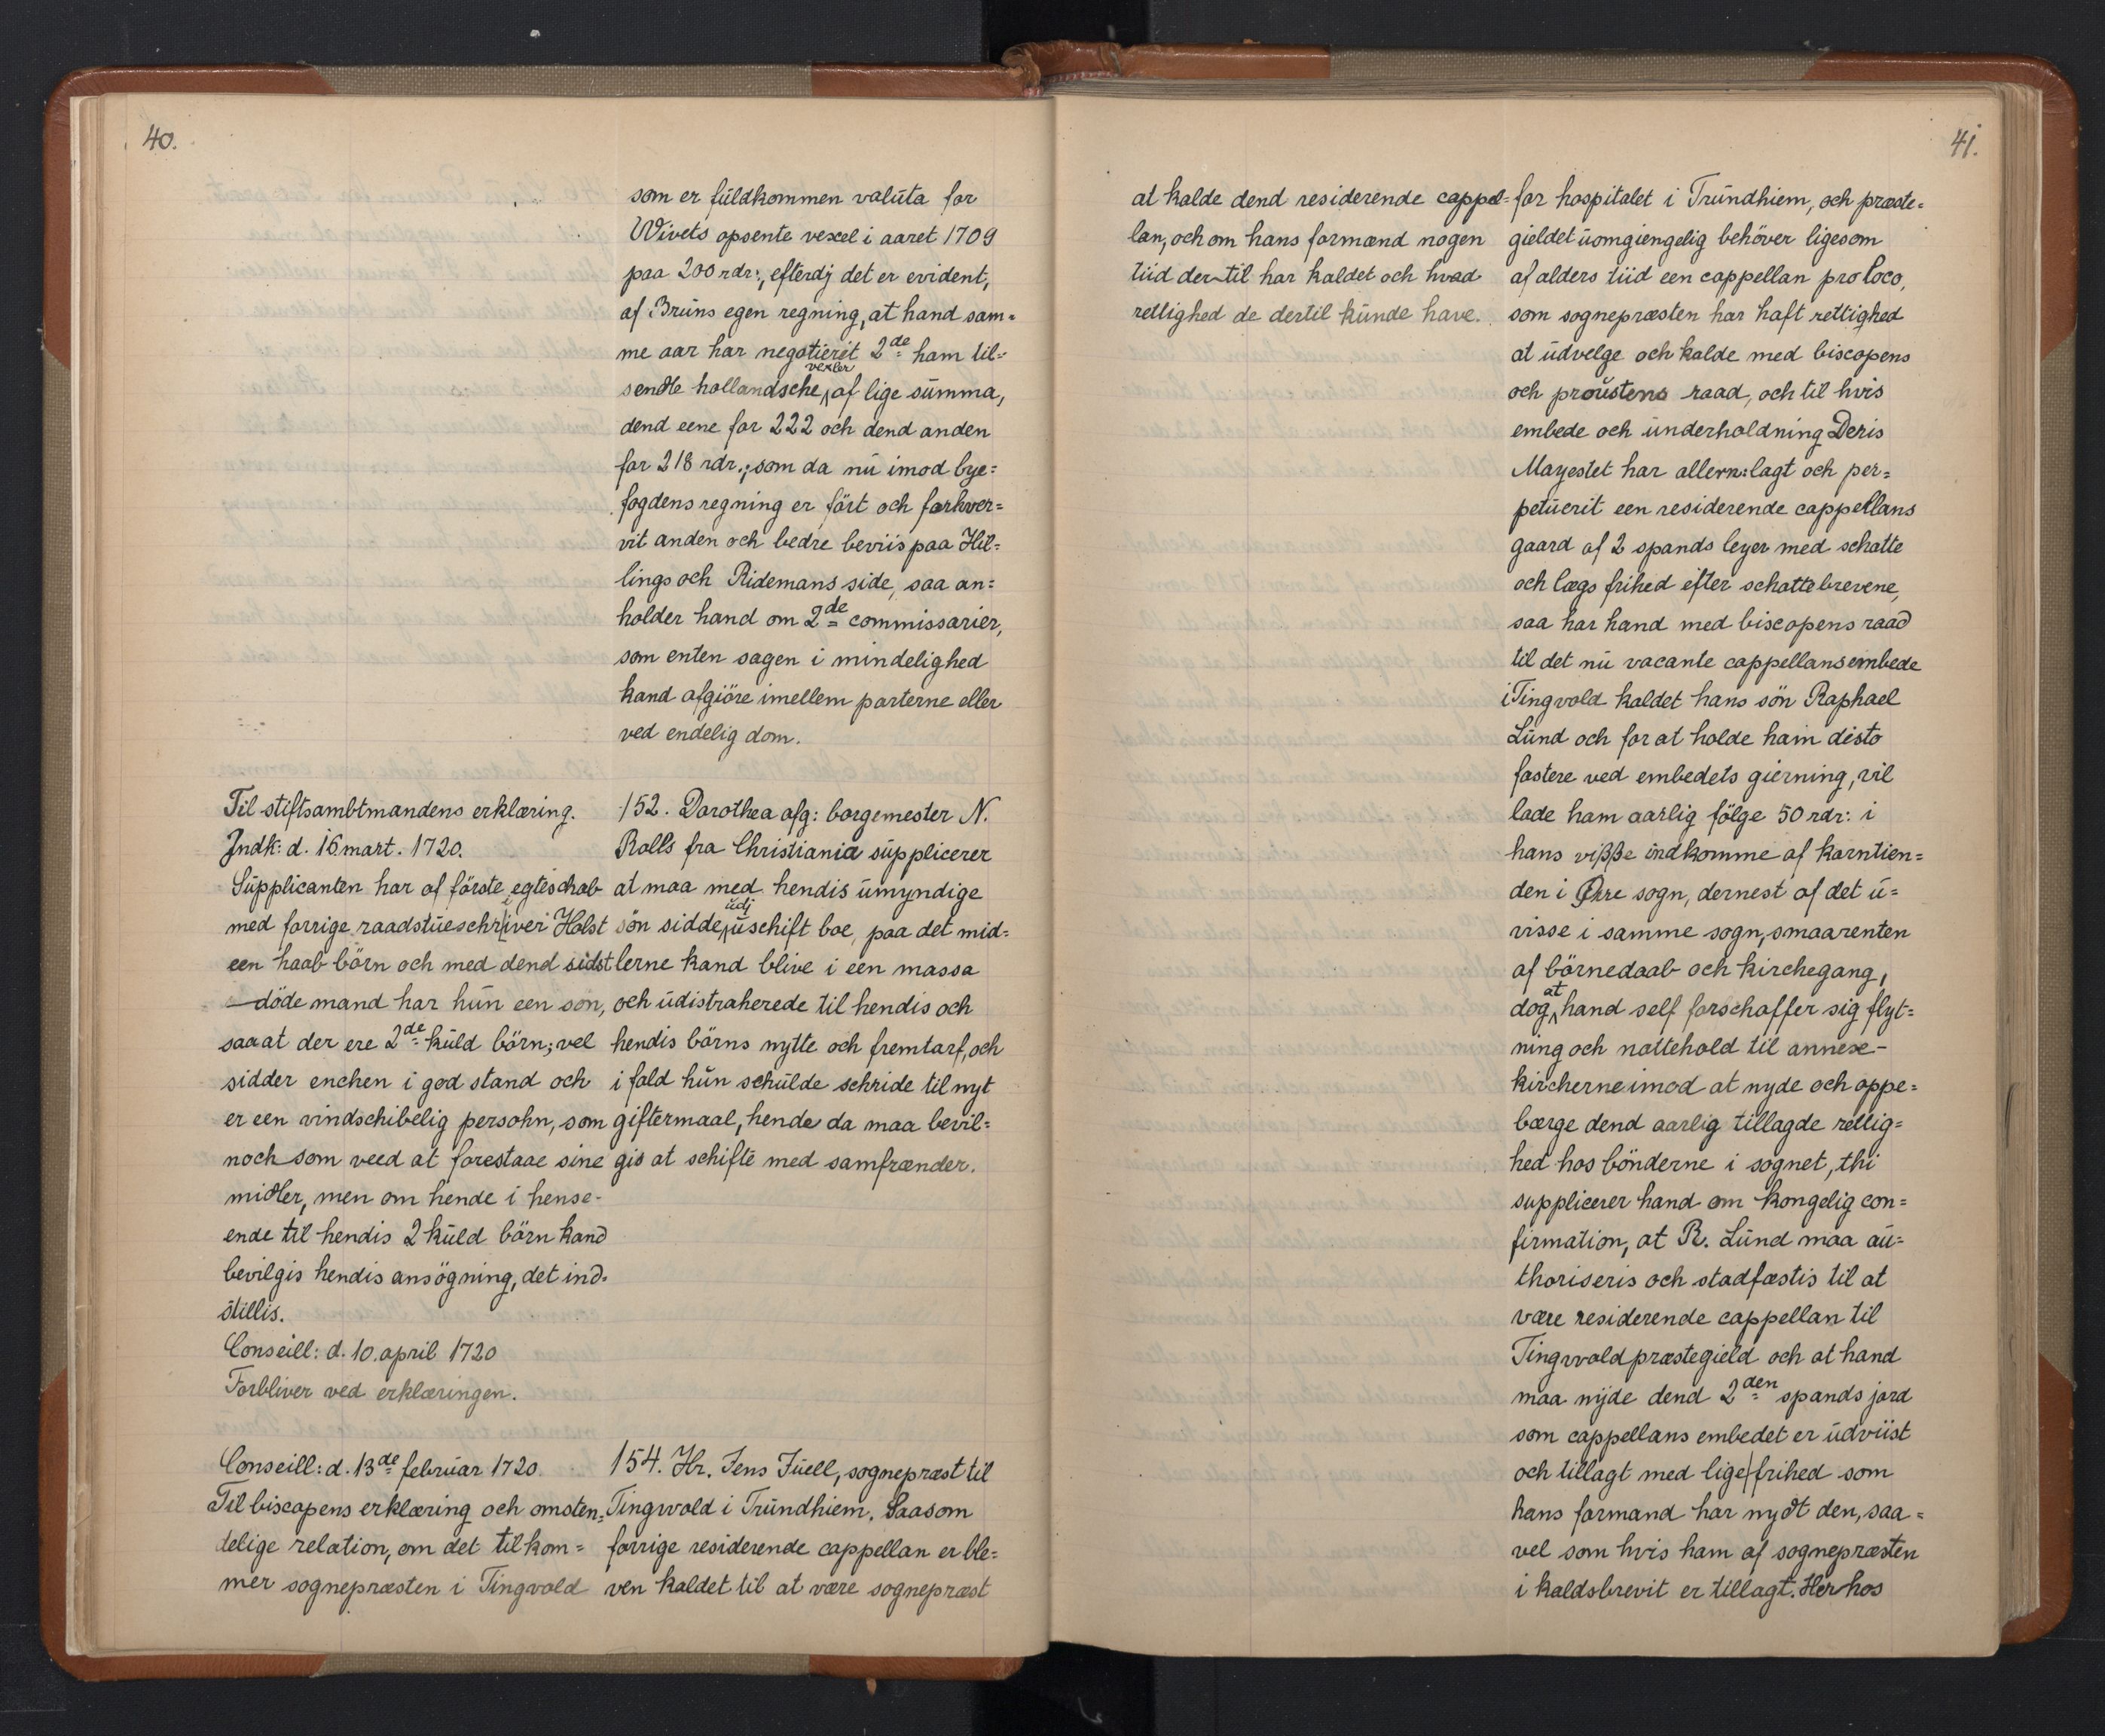 40.
som er fuldkommen valuta for
Wivets opsente vexel i aaret 1709
paa 200 rdr:, efterdj det er evident,
af Bruns egen regning, at hand sam=
me aar har negotierit 2de ham til=
sendte hollandsche vexler af lige summa,
dend eene for 222 och dend anden
for 218 rdr.; som da nu imod bye=
fogdens regning er fört och forhver=
vit anden och bedre beviis paa Hil=
lings och Ridemans side, saa an=
holder hand om 2de commissarier,
som enten sagen i mindelighed
kand afgiöre imellem parterne eller
ved endelig dom.
Til stiftsambtmandens erklæring.
Indk: d. 16 mart. 1720.
Supplicanten har af förste egteschab
med forrige raadstueschriver Holst
een haab börn och med dend sidst
döde mand har hun een son,
saa at der ere 2de kuld börn; vel
sidder enchen i god stand och
er een vindschibelig persohn, som
noch som veed at forestaae sine
midler, men om hende i hense-
ende til hendis 2 kuld börn kand
bevilgis hendis ansögning, det ind=
stillis.
Conseill: d. 10. april 1720
Forbliver ved erklæringen.
152. Dorothea afg: borgemester N.
Rolls fra Christiania supplicerer
at maa med hendis umyndige
sön sidde udj uschift boe, paa det mid=
lerne kand blive i een massa
och udistraherede til hendis och
hendis börns nytte och fremtarf, och
i fald hun schulde schride til nyt
giftermaal, hende da maa bevil=
gis at schifte med samfrænder.
Conseill: d. 13de februar 1720.
Til biscopens erklæring och omsten=
delige relation, om det tilkom=
mer sognepræsten i Tingvold
154. Hr. Jens Juell, sognepræst til
Tingvold i Trundhiem. Saasom
forrige residerende cappellan er ble=
ven kaldet til at være sognepræst
41.
at kalde dend residerende cappel=
lan, och om hans formænd nogen
tiid der til har kaldet och hvad
rettighed de dertil kunde have.
for hospitalet i Trundhiem, och præste=
gieldet uomgiengelig behöver ligesom
af alders tiid een cappellan pro loco,
som sognepræsten har haft rettighed
at udvelge och kalde med biscopens
och proustens raad, och til hvis
embede och underholdning Deris
Mayestet har allern: lagt och per=
petuerit een residerende cappellans
gaard af 2 spands leyer med schatte
och lægs frihed efter schattebrevene,
saa har hand med biscopens raad
til det nu vacante cappellans embede
i Tingvold kaldet hans sön Raphael
Lund och for at holde ham disto
fastere ved embedets gierning, vil
lade ham aarlig fölge 50 rdr: i
hans viſſe indkomme af korntien=
den i Öre sogn, dernest af det u=
visse i samme sogn, smaarenten
af börnedaab och kirchegang,
dog at hand self forschaffer sig flyt=
ning och nattehold til annex-
kircherne imod at nyde och oppe=
bærge dend aarlig tillagde rettig=
hed hos bönderne i sognet, thi
supplicerer hand om kongelig con=
firmation, at R. Lund maa au=
thoriseris och stadfæstis til at
være residerende cappellan til
Tingvold præstegield och at hand
maa nyde dend 2den spands jord
som cappellans embedet er udviist
och tillagt med lige frihed som
hans formand har nydt den, saa=
vel som hvis ham af sognepræsten
i kaldsbrevit er tillagt. Her hos